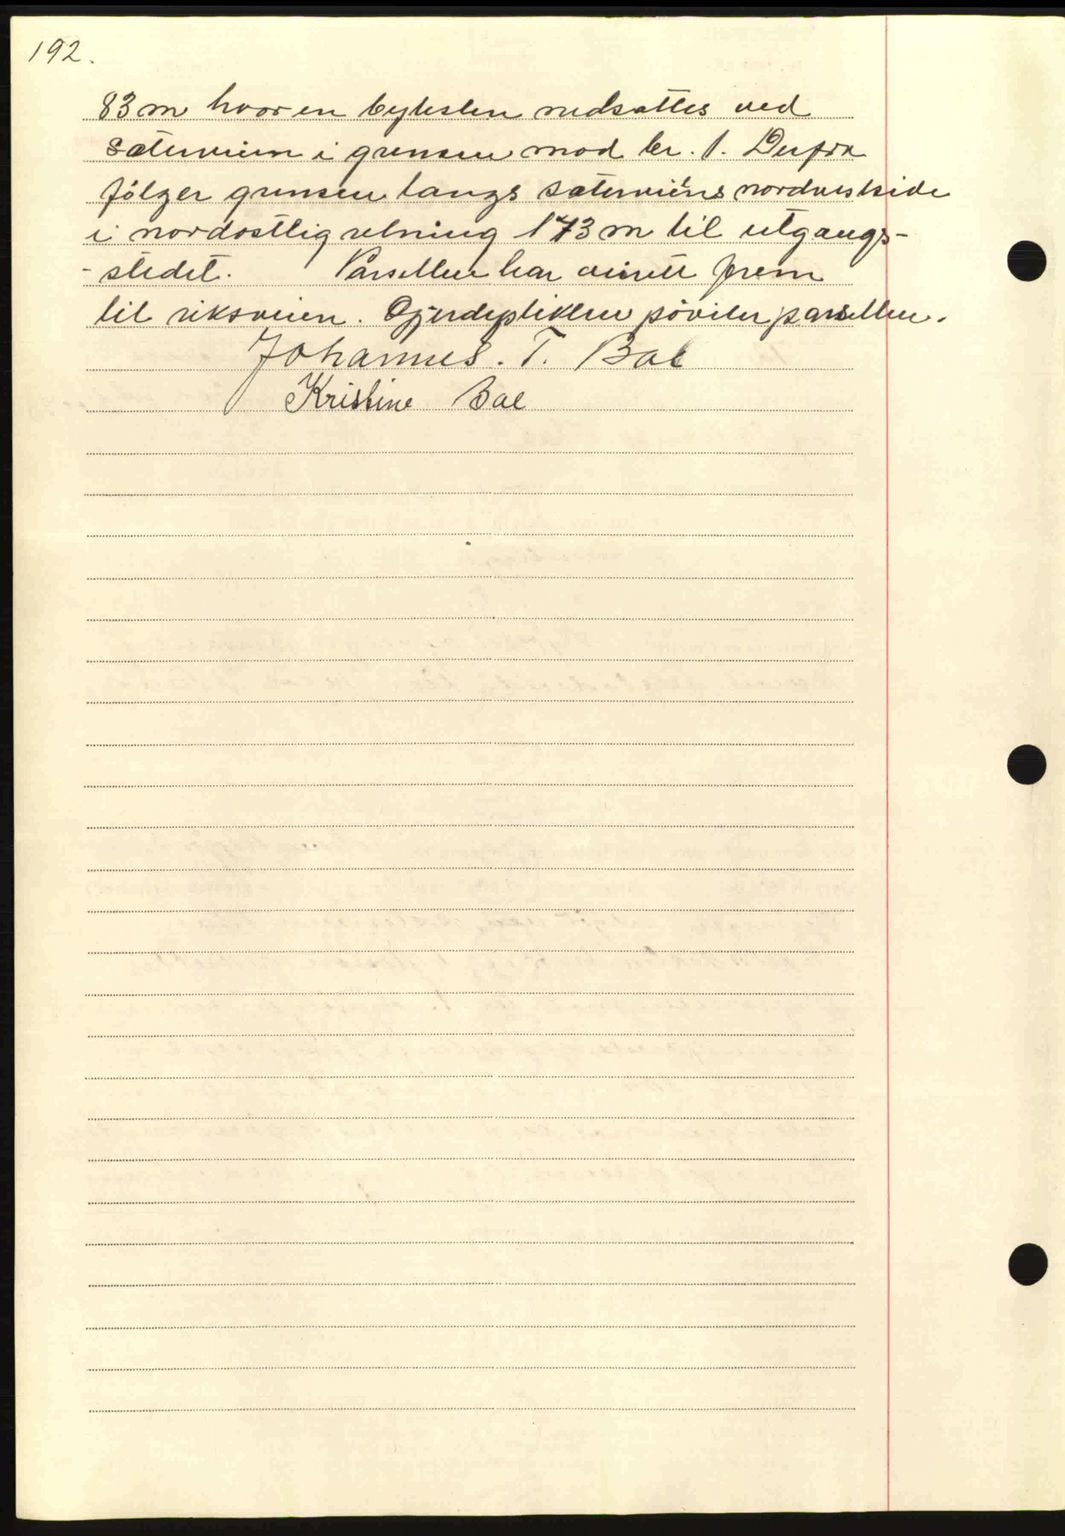 192.
83 m hvor en bytesten nedsattes ved
sæterveien i grensen mod br. 1. Derfra
følger grensen langs sæterveiens nordvestside
i nordøstlig retning 173 m til utgangs-
- stedet. Parsellen har veirett frem
til riksveien. Gjerdeplikten påviler parsellen.
Johannes. T. Bae
Kristine Bae